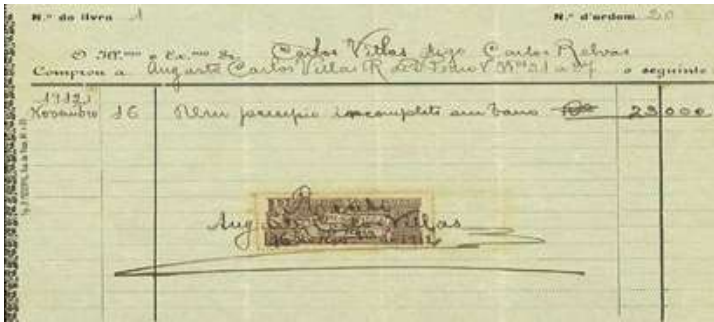 N.º do livro 1 N.º d'ordem 20
O Ill.mo e Ex.mo Sr. Carlos Villas digo Carlos Relvas
Comprou a Augusto Carlos Villas R. de D. Pedro V Nos 21 a 27 o seguinte
1912
Novembro 16 Um presepio incompleto em barro 25000
Augusto Villas